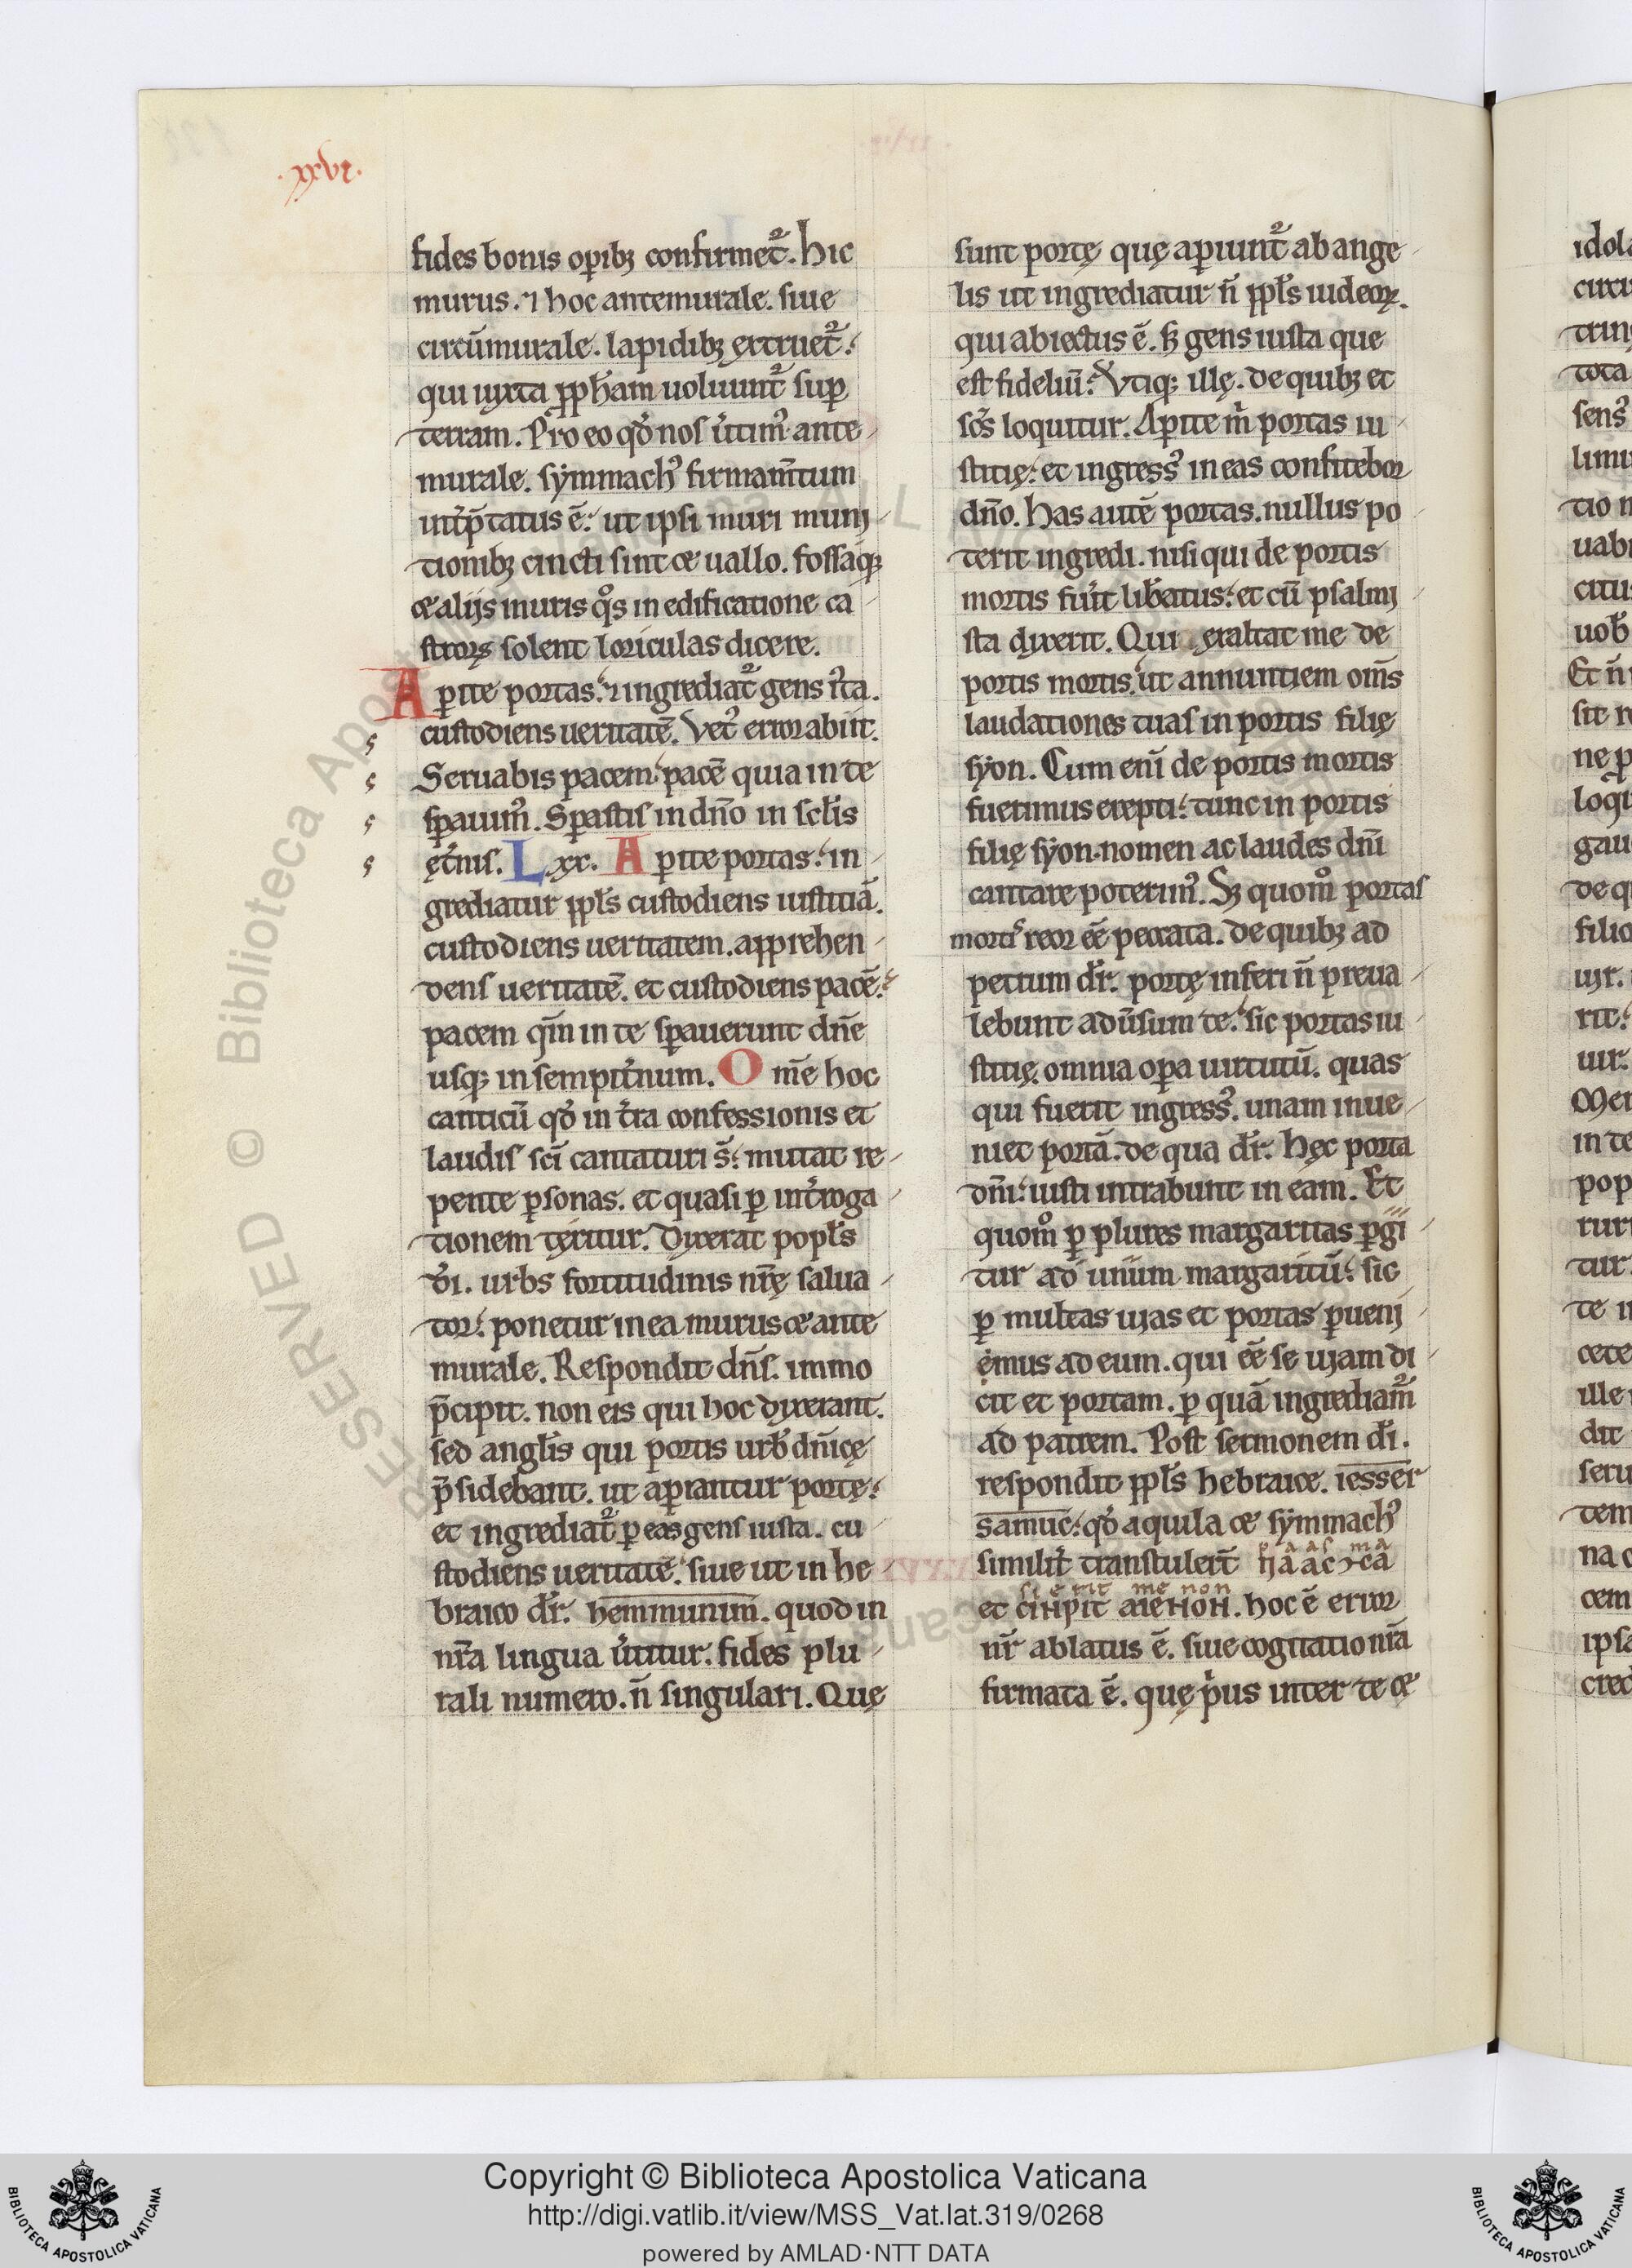 .xxvi.
fides bonis opib; confirmet᷑. hic
murus. ⁊ hoc antemurale. siue
circũmurale. lapidib; extruet᷑.
qui iuxta ꝓpħam uoluunt᷑ suꝑ
terram. Pro eo qđ nos ũtim᷒ ante
murale. sẏmmach᷒ firmam̃tum
int̾p̃tatus ẽ. ut ipsi muri muni
tionib; cincti sint & uallo. fossaq;
& alijs muris q̊s in edificatione ca
stroꝝ solent loriculas dicere.
Aꝑite portas. ⁊ ingrediat᷑ gens iȓta.
custodiens ueritatẽ. Vet᷒ error abiit.
Seruabis pacem. pacẽ quia in te
sꝑauim᷒. Sꝑastis in dño in scłis
ęt̾nis. Lxx. Aꝑite portas. in
grediatur ppłs custodiens iustitiã.
custodiens ueritatem. apprehen
dens ueritatẽ. et custodiens pacẽ.
pacem qm̃ in te sꝑauerunt dñe
usq; in sempit̾num. Om̃e hoc
canticũ qđ in t̾ra confessionis et
laudis sc̃i cantaturi s̃. mutat re
pente ꝑsonas. et quasi ꝑ int̾roga
tionem tęritur. Dixerat popłs
đi. urbs fortitudinis nr̃ę salua
tor. ponetur in ea murus & ante
murale. Respondit dñs. immo
p̃cipit. non eis qui hoc dixerant.
sed angłis qui portis urƀ dñicę
p̃sidebant. ut aꝑiantur portę.
et ingrediat᷑ ꝑ eas gens iusta. cu
stodiens ueritatẽ. siue ut in he
braico dr̃. hemmunim. quod in
nr̃a lingua ũtitur. fides plu
rali numero. ñ singulari. Quę
sunt portę quę aꝑiunt᷑ ab ange
lis ut ingrediatur ñ ppłs iudeoꝝ.
qui abiectus ẽ. s; gens iusta que
est fideliũ. Vtiq; illę. de quib; et
sc̃s loquitur. Aꝑite m̃ portas iu
stitię. et ingress᷒ in eas confitebor
dño. Has autẽ portas. nullus po
terit ingredi. nisi qui de portis
mortis fu̾it libatus. et cũ psalmi
sta dixerit. Qui exaltat me de
portis mortis. ut annuntiem om̃s
laudationes tuas in portis filię
sẏon. Cum eni᷑ de portis mortis
fuerimus erepti. tunc in portis
filię sẏon. nomen ac laudes dñi
cantare poterim᷒. S; quom̊ portas
mortis reor ẽẽ peccata. de quib; ad
petrum dr̃. portę inferi ñ preua
lebunt adũsum te. sic portas iu
stitię. omnia oꝑa uirtutũ. quas
qui fuerit ingress᷒. unam inue
niet portã. de qua dr̃. Hęc porta
dñi. iusti intrabunt in eam. Et
quom̊ ꝑ plures margaritas ꝑgi
tur ad unũm margaritũ. sic
ꝑ multas uias et portas ꝑueni
emus ad eum. qui ẽẽ se uiam di
cit et portam. ꝑ quã ingrediam᷑
ad patrem. Post sermonem đi.
respondit ppłs hebraice. iesser
samuc. qđ aquila & sẏmmach᷒
similit̾ transtulert̃ ΠΛΑΑСΜΑ
p a as ma
et СΙΗΡΙΤ ΜΕΗΟΗ. hoc ẽ error
si e rit me non
nr̃ ablatus ẽ. siue cogitatio nr̃a
firmata ẽ. quę p̾us inter te &
Copyright © Biblioteca Apostolica Vaticana
http://digi.vatlib.it/view/MSS_Vat.lat.319/0268
powered by AMLAD·NTT DATA
BIBLIOTECA APOSTOLICA VATICANA
BIBLIOTECA APOSTOLICA VATICANA